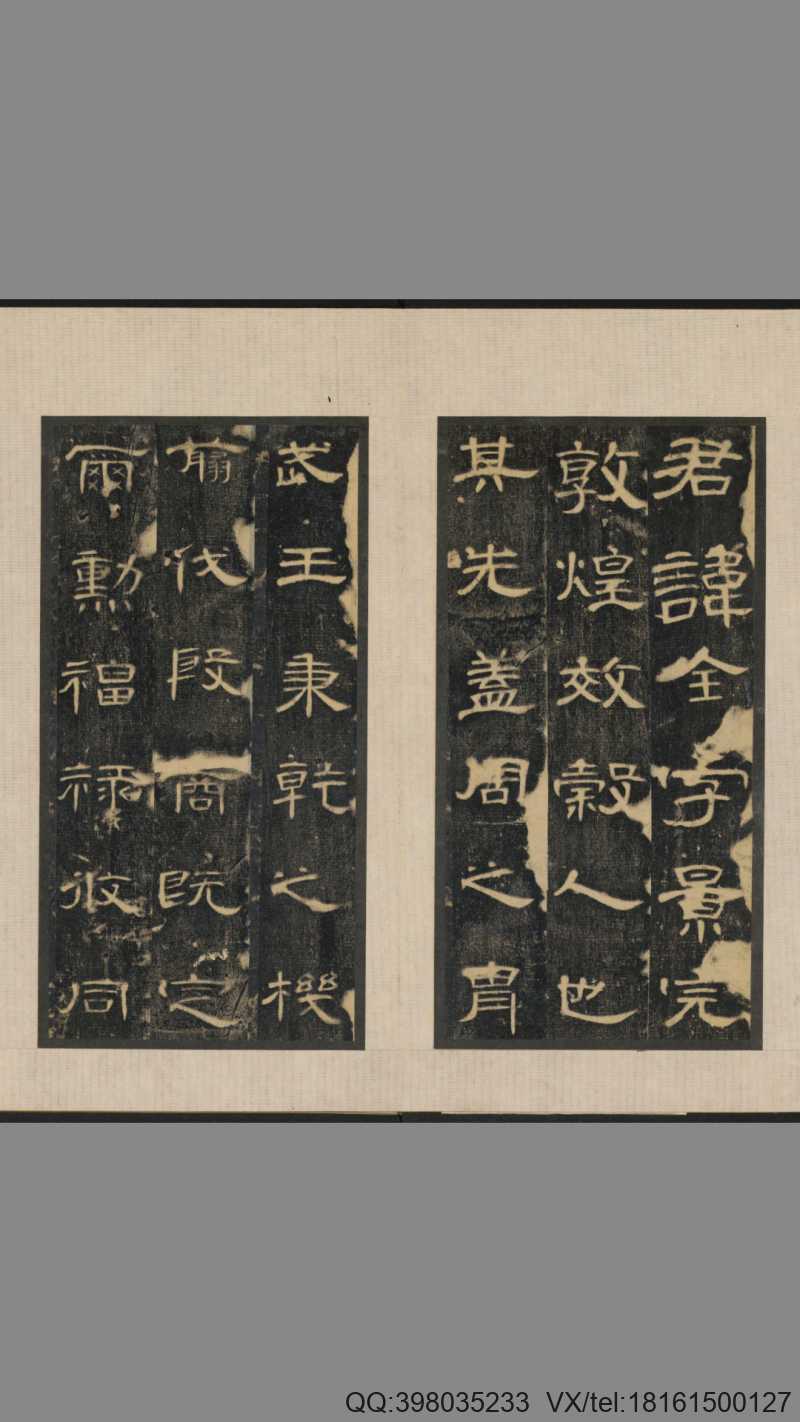 君諱全字景完
敦煌效穀人也
其先蓋周之胄
武王秉乾之機
翦伐殷商既定
爾勳福祿攸同
QQ:398035233 VX/tel:18161500127